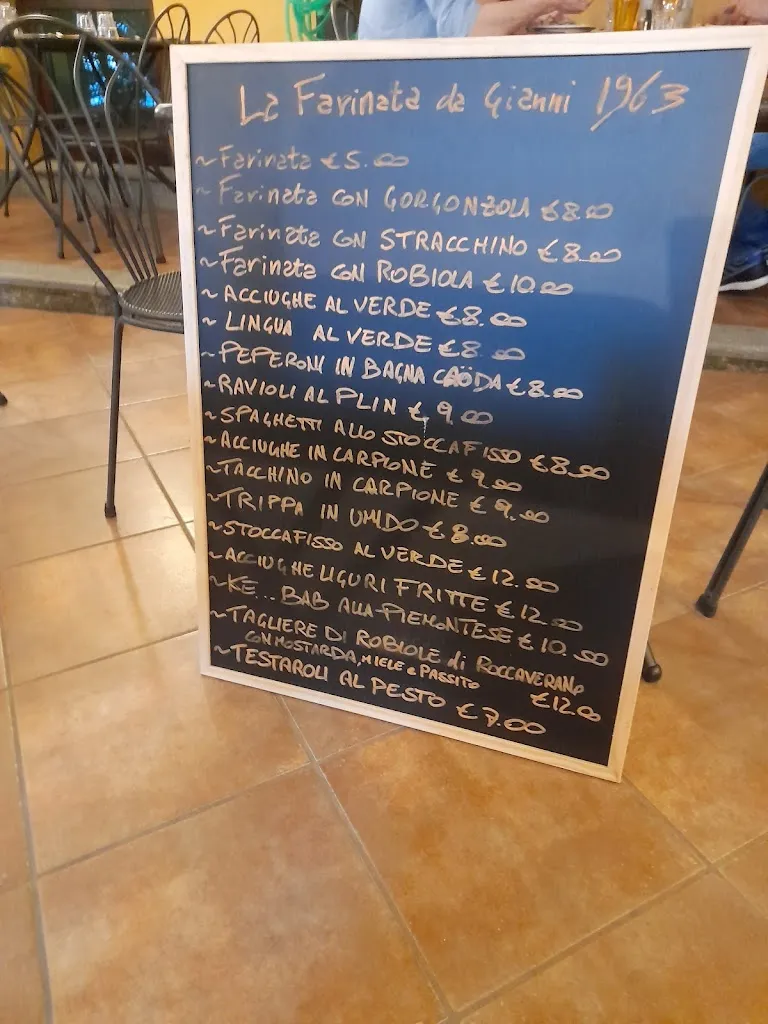 La Farinata da Gianni 1963
~Farinata €5.00
~Farinata CON GORGONZOLA €8.00
~Farinata CON STRACCHINO €8.00
~Farinata CON ROBIOLA €10.00
~ACCIUGHE AL VERDE €8.00
~LINGUA AL VERDE €8.00
~PEPERONI IN BAGNA CAÖDA €8.00
~RAVIOLI AL PLIN €9.00
~SPAGHETTI ALLO STOCCAFISSO €8.00
~ACCIUGHE IN CARPIONE €9.00
~TACCHINO IN CARPIONE €9.00
~TRIPPA IN UMIDO €8.00
~STOCCAFISSO AL VERDE €12.00
~ACCIUGHE LIGURI FRITTE €12.00
~KE...BAB ALLA PIEMONTESE €10.00
~TAGLIERE DI ROBIOLE di ROCCAVERANO
CON MOSTARDA, MIELE e PASSITO €12.00
~TESTAROLI AL PESTO €7.00